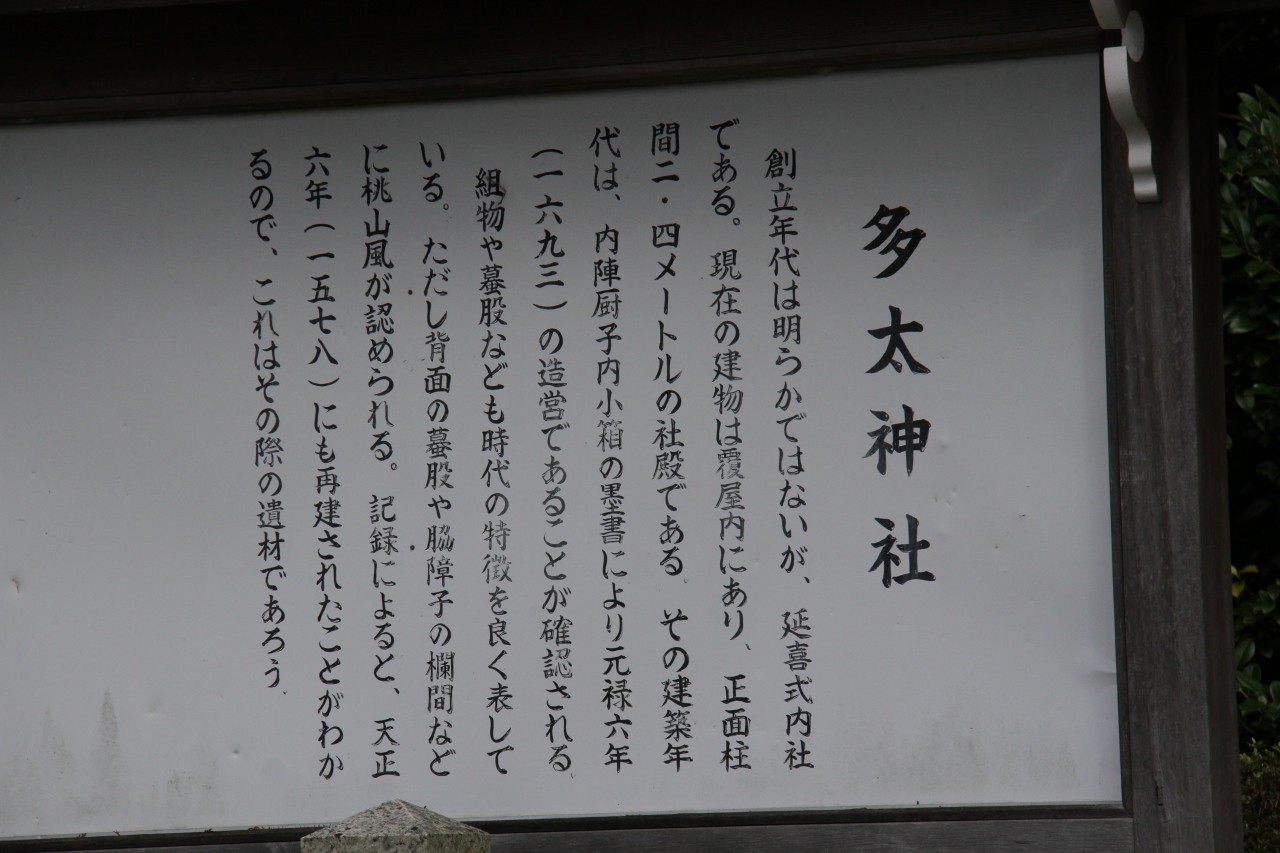 多太神社
創立年代は明らかではないが、延喜式内社
である。現在の建物は覆屋内にあり、正面柱
間二・四メートルの社殿である。その建築年
代は、内陣厨子内小箱の墨書により元禄六年
（一六九三）の造営であることが確認される。
組物や蟇股なども時代の特徴を良く表して
いる。ただし背面の蟇股や脇障子の欄間など
に桃山風が認められる。記録によると、天正
六年（一五七八）にも再建されたことがわか
るので、これはその際の遺材であろう。